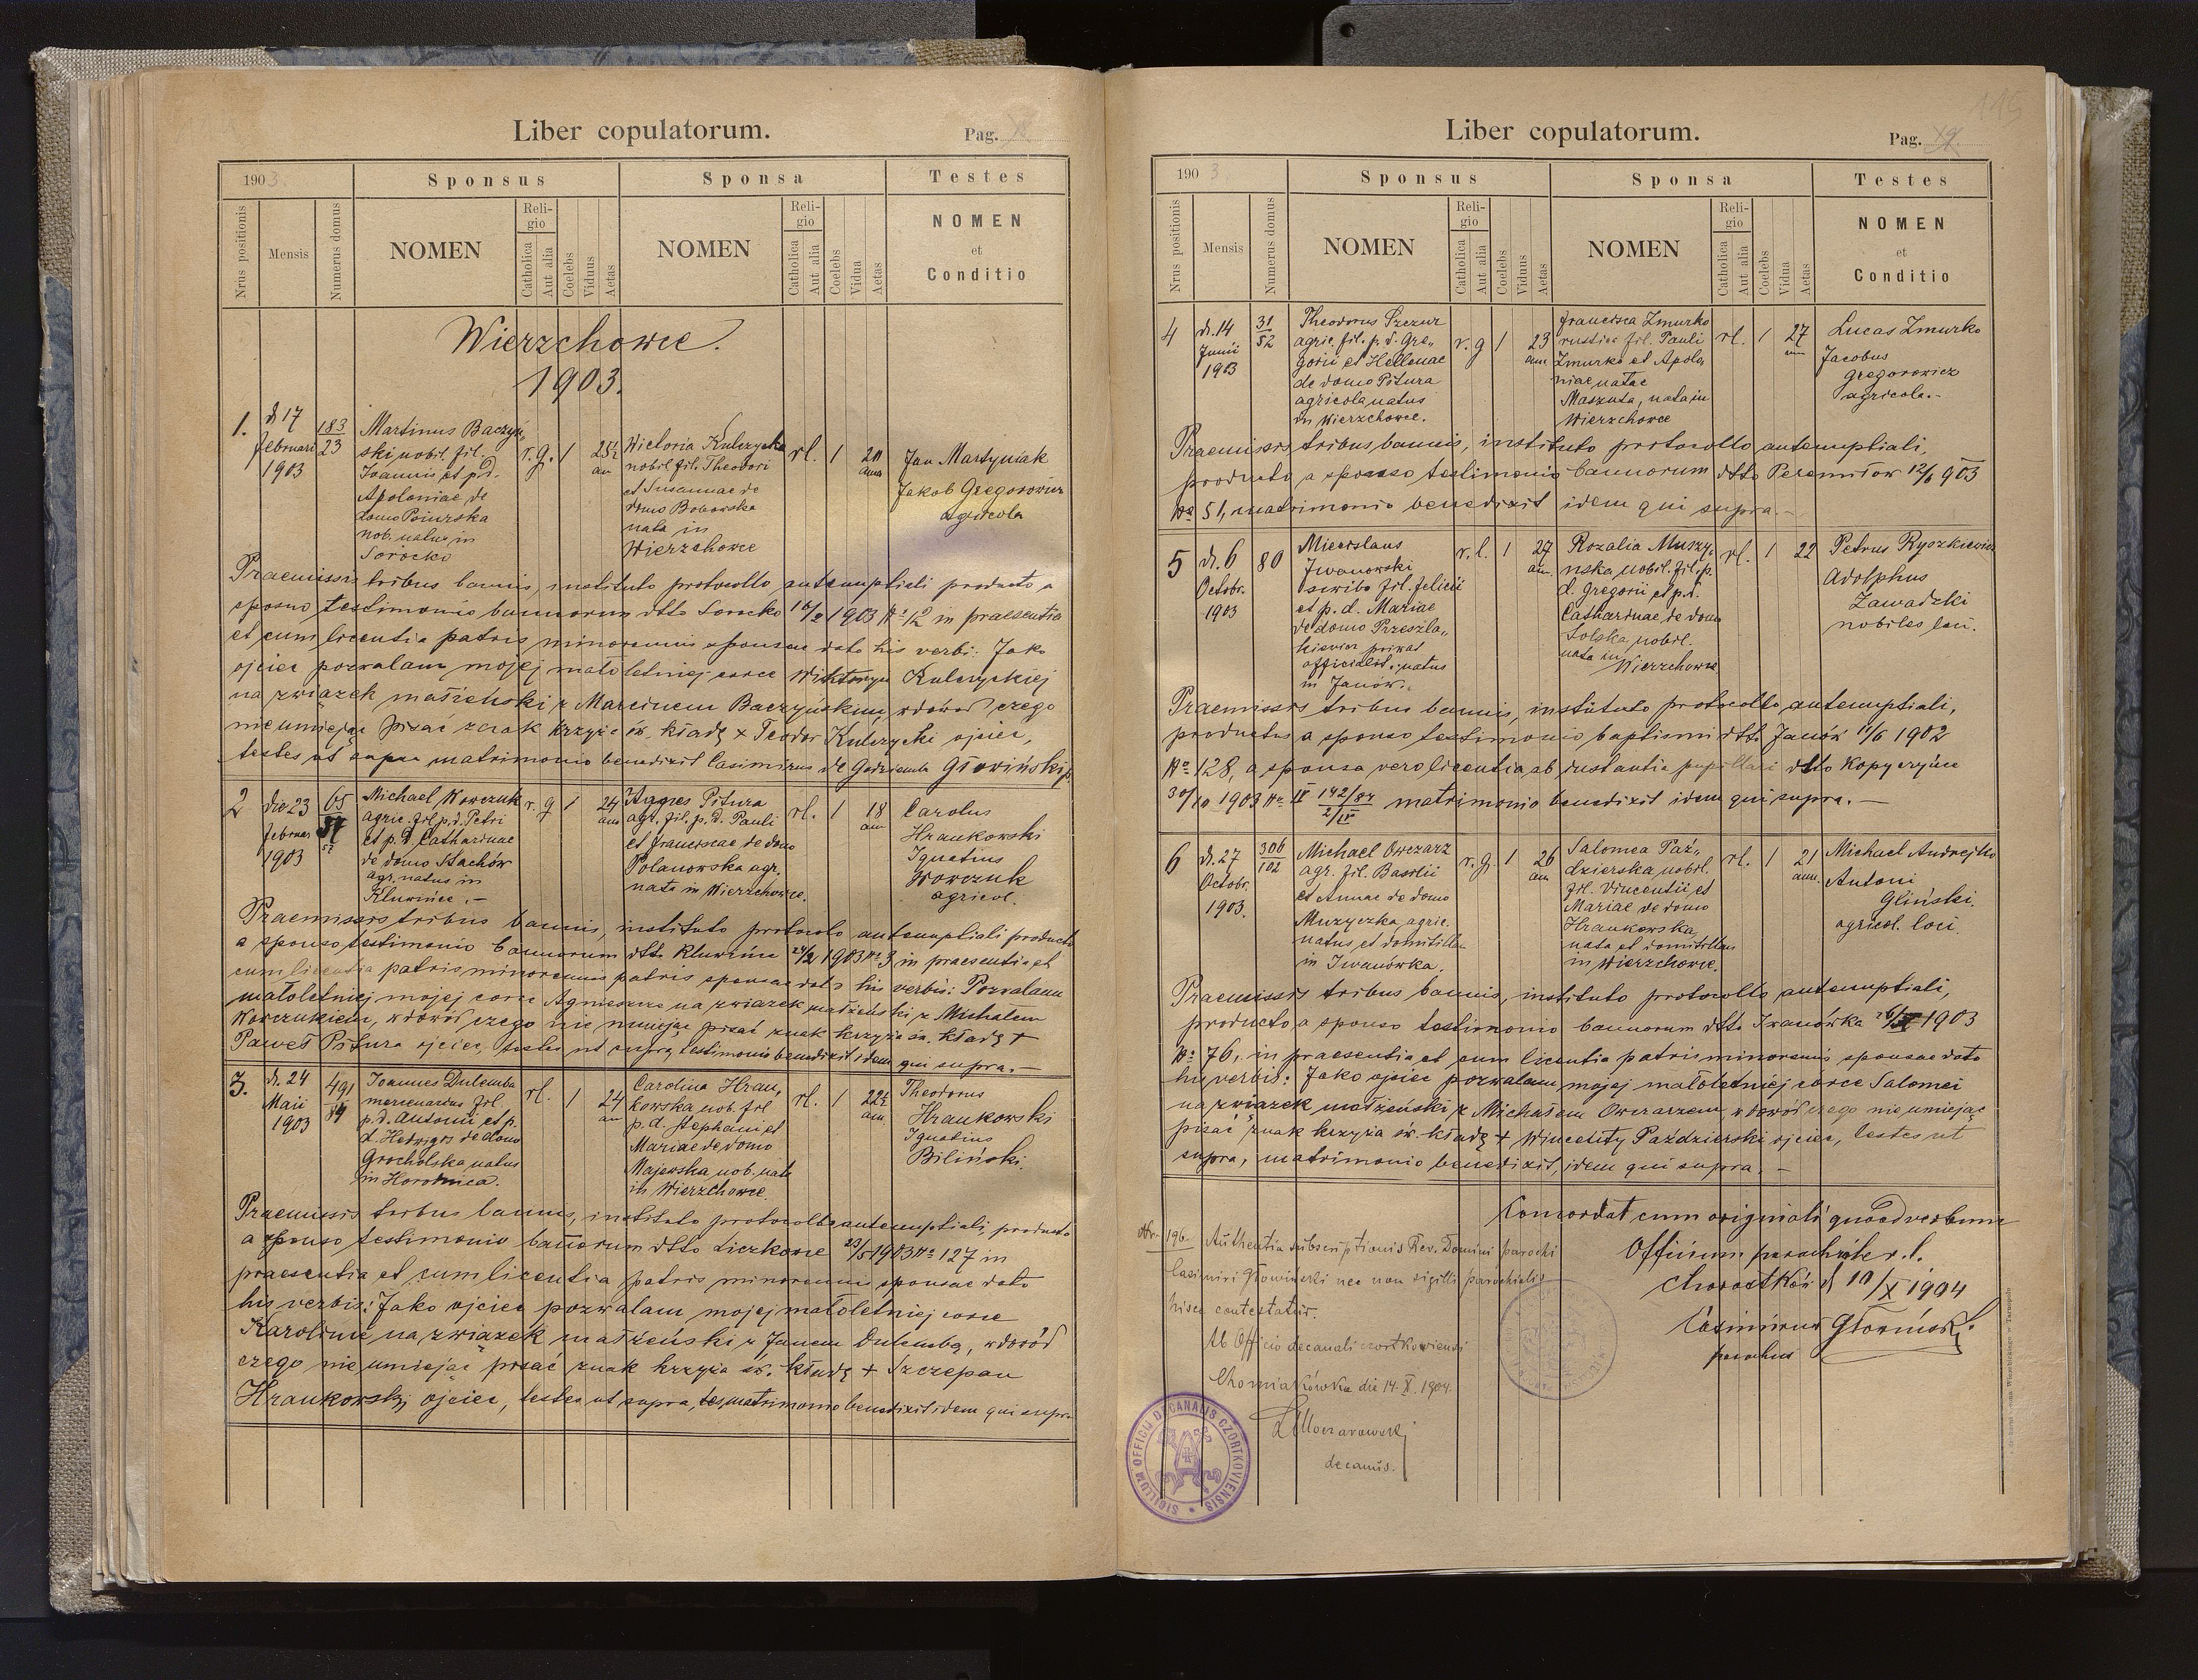 Liber copulatorum.
Pag.
1903
Sponsus
Sponsa
Testes
Nrus positionis
Mensis
Numerus domus
NOMEN
Religio
Catholica
Aut alia
Coelebs
Viduus
Aetas
NOMEN
Religio
Catholica
Aut alia
Coelebs
Vidua
Aetas
NOMEN
et
Conditio
Wierzchowce.
1903.
1.
d 17
februarii
1903
183
23
Martinus Baczyń„
ski nobil. fil.
Joannis et p.d.
Apoloniae de
domo Poiurska
nob. natus in
Sorocko
r. g.
1
25½
an
Wictoria Kulczycka
nobil. fil. Theodori
et Susannae de
domo Bobowska
nata in
Wierzchowce
rl.
1
20
anno
Jan Martyniak
Jakob Gregorowicz
agricola
Praemissis tribus bannis, instituto protocollo antenuptiali producto a
sponso testimonio bannorum dtto Sorocko 16/2 1903 No 12 in praesentia
et cum licentia patris minorennis sponsae dato his verbi: Jako
ojciec pozwalam mojej małoletniej corce Wiktoryi Kulczyckiej
na związek małżeński z Marcinem Baczyńskim, w dowód czego
nie umiejąc pisać znak krzyża św. kładę + Teodor Kulczycki ojciec,
testes ut supra matrimonio benedixit Casimirus de Godziemba Głowiński p.
2
die 23
februar
1903
65
57
Michael Wowczuk
agric. fil. p. d. Petri
et p. d. Catharinae
de domo Stachów
agr. natus in
Kluwińce. –
r. g
1
24
ann
Agnes Pitura
agr. fil. p. d. Pauli
et franciscae de domo
Polanowska agr.
nata in Wierzchowce.
rl.
1
18
ann
Carolus
Hrankowski
Ignatius
Wowczuk
agricol.
Praemissis tribus bannis, instituto protocolo antenuptiali producto
a sponso testimonio bannorum dtto Kluwińce 24/2 1903 No 3 in praesentia et
cum licentia patris minorennis patris sponsae dato his verbis: Pozwalam
małoletniej mojej corce Agnieszce na związek małżeński z Michałem
Wowczukiem, w dowód czego nie umiejąc pisać znak krzyża św. kładę +
Paweł Pitura ojciec, testes ut supra testimonio benedixit idem qui supra. –
3.
d. 24
Maii
1903
491
84
Joannes Dulemba
mercenarius fil
p. d. Antonii et p.
d. Hedvigis de domo
Grocholska natus
in Horodnica.
rl.
1
24
an
Carolina Hran„
kowska nob. fil
p. d. Stephani et
Mariae de domo
Majewska nob. nata
in Wierzchowce.
rl.
1
22½
an
Theodorus
Hrankowski
Ignatius
Biliński.
Praemissis tribus bannis, instituto protocollo antenuptiali, producto
a sponso testimonio bannorum dtto Liczkowce 23/5 1903 No 127 in
praesentia et cum licentia patris minorennis sponsae dato
his verbis: Jako ojciec pozwalam mojej małoletniej corce
Karolinie na związek małżeński z Janem Dulembą, w dowód
czego nie umiejąc pisać znak krzyża św. kładę + Szczepan
Hrankowski ojciec, testes ut supra, matrimonio benedixit idem qui supra
Liber copulatorum.
Pag.
115
1903
Sponsus
Sponsa
Testes
Nrus positionis
Mensis
Numerus domus
NOMEN
Religio
Catholica
Aut alia
Coelebs
Viduus
Aetas
NOMEN
Religio
Catholica
Aut alia
Coelebs
Vidua
Aetas
NOMEN
et
Conditio
4
d. 14
Junii
1903
31
52
Theodorus Szczur
agric. fil. p. d. Gre„
gorii et Hellenae
de domo Pitura
agricola natus
in Wierzchowce.
r. g
1
23
ann
francisca Zmurko
rustica fil. Pauli
Zmurko et Apolo„
niae natae
Maszuta, nata in
Wierzchowce
rl.
1
27
ann
Lucas Zmurko
Jacobus
Gregorowicz
agricola. –
Praemissis tribus bannis, instituto protocollo antenuptiali,
producto a sponso testimonio bannorum dtto Peremiłow 12/6 903
No 51, matrimonio benedixit idem qui supra. –
5
d. 6
Octobr.
1903
80
Miecislaus
Iwanowski
scriba fil. felicii
et p. d. Mariae
de domo Przeszla„
kiewicz privat
officialist. natus
in Janów.
r. l.
1
27
an.
Rozalia Muszy„
nska nobil. fil. p.
d. Gregorii et p. d.
Catharinae de domo
Solska nobil.
nata in
Wierzchowce
rl.
1
22
Petrus Ryszkiewicz
Adolphus
Zawadzki
nobiles loci.
Praemissis tribus bannis, instituto protocollo antenuptiali,
productus a sponso testimonio baptismi dtto Janów 11/6 1902
No 128, a sponsa vero licentia ab instantia pupillari dtto Kopyczyńce
30/10 1903 No IV 142/84 2/IV matrimonio benedixit idem qui supra. –
6
d. 27
Octobr.
1903.
306
102
Michael Owczarz
agr. fil. Basilii
et Annae de domo
Muzyczka agric.
natus et domicilian
in Iwanówka.
r. g.
1
26
an
Salomea Paź„
dzierska nobil.
fil. Vincentii et
Mariae de domo
Hrankowska
nata et domicilian
in Wierzchowce.
rl.
1
21
ann.
Michael Andrejko
Antoni
Gliński.
agricol. loci.
Praemissis tribus bannis, instituto protocollo antenuptiali,
producto a sponso testimonio bannorum dtto Iwanówka 1903
No 76, in praesentia et cum licentia patris minorennis sponsae dato
his verbis: Jako ojciec pozwalam mojej małoletniej corce Salomei
na związek małżeński z Michałem Owczarzem w dowód czego nie umiejąc
pisać znak krzyża św. kładę + Wincenty Paździerski ojciec, testes ut
supra, matrimonio benedixit, idem qui supra. –
Concordat cum originali quoad verbum
Officium parochiale r. l.
Chorostków d 10/X 1904
Casimirus Głowiński
parochus
Nr. 196
Authentia subscriptionis Rev. Domini parochi
Casimiri Głowiński nec non sigilli parochialis
hisce contestatur.
Ab Officio decanali czortkoviensi
Chomiakówka die 14. X. 1904.
decanus.
SIGILLUM OFFICII DECANALIS CZORTKOVIENSIS